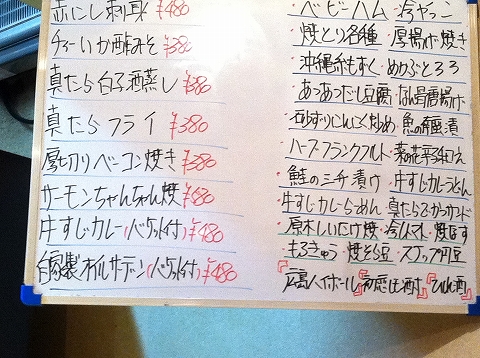 赤にし刺身 ¥480
チャーいか酢みそ ¥380
真たら白子酒蒸し ¥580
真たらフライ ¥380
厚切りベーコン焼き ¥380
サーモンちゃんちゃん焼 ¥680
牛すじカレー(バケット付) ¥480
自家製オイルサーデン(バケット付) ¥480
・ベビーハム ・冷やっこ
・焼とり各種 ・厚揚げ焼き
・沖縄糸もずく ・めかぶとろろ
・あつあつだし豆腐 ・なん骨唐揚げ
・砂ずりにんにく炒め ・魚の麹漬
・ハーブフランクフルト ・菜の花辛子和え
・鮭のミチ漬け ・牛すじカレーうどん
・牛すじカレーらーめん
・原木しいたけ焼 ・冷トマト ・焼なす
・もろきゅう ・焼そら豆 ・スナップ円豆
『広島ハイボール』『初恋は酒』『ひれ酒』